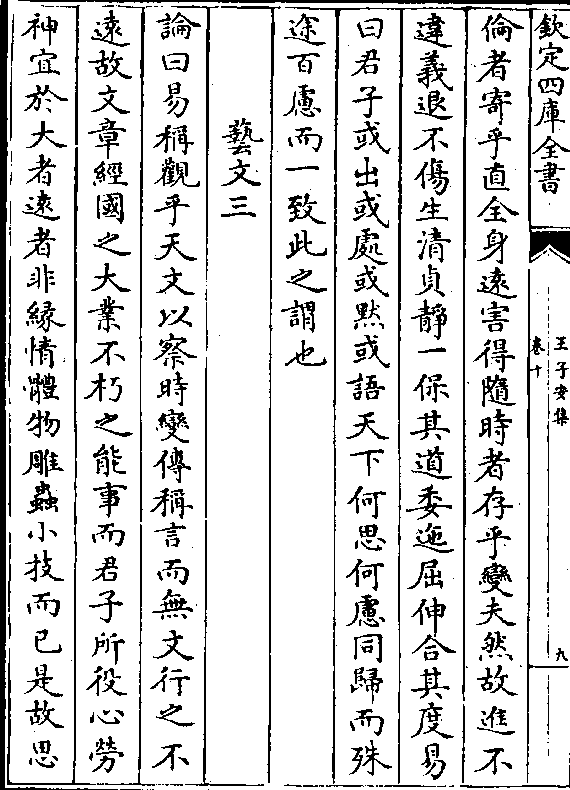 欽定四庫全書
王子安集
卷十
九
倫者寄乎直全身遠害得隨時者存乎變夫然故進不
違義退不傷生清貞靜一保其道委迤屈伸合其度易
曰君子或出或處或黙或語天下何思何慮同歸而殊
途百慮而一致此之謂也
藝文三
論曰易稱觀乎天文以察時變傳稱言而無文行之不
逺故文章經國之大業不朽之能事而君子所役心勞
神宜於大者逺者非縁情體物雕蟲小技而已是故思